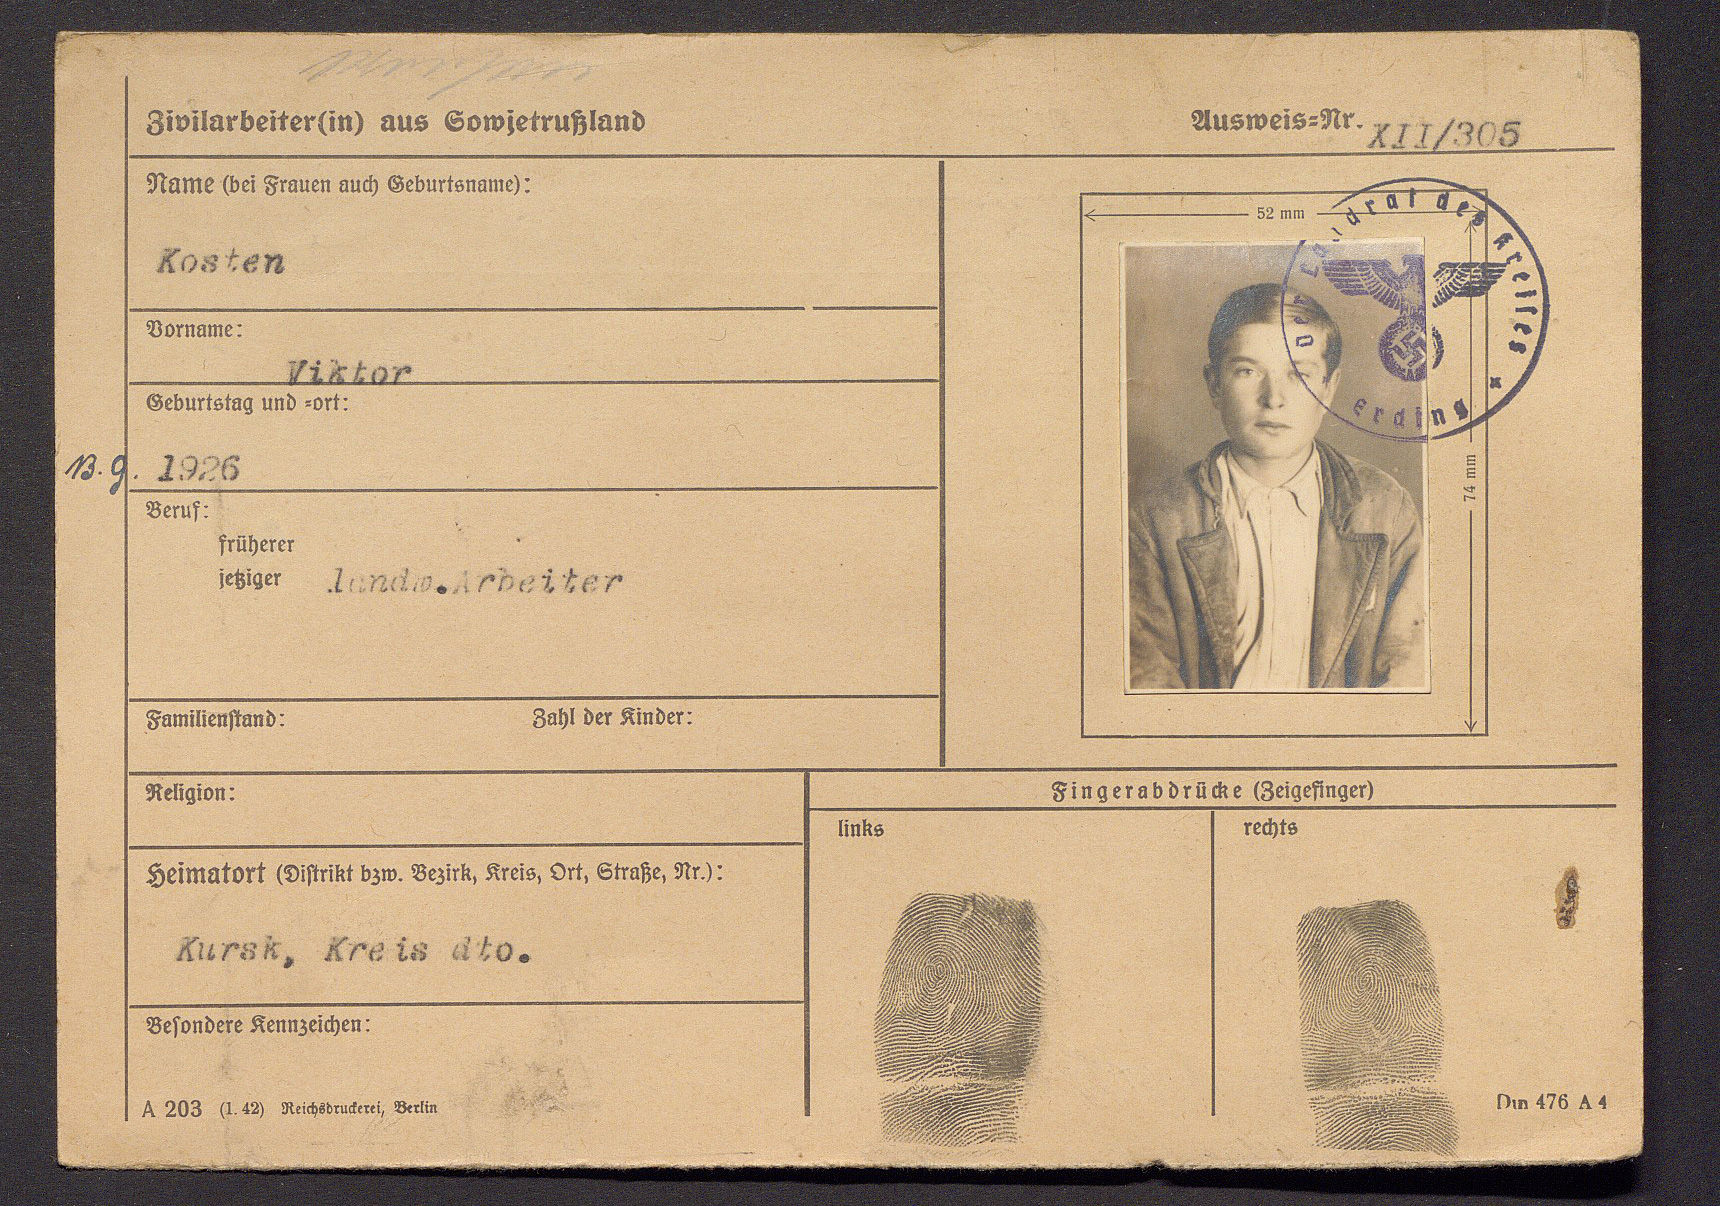 Zivilarbeiter(in) aus Sowjetrußland
Ausweis=Nr. XII/305
Name (bei Frauen auch Geburtsname):
Kosten
Vorname:
Viktor
Geburtstag und =ort:
13. 9. 1926
Beruf:
früherer
jetziger landw. Arbeiter
Familienstand: Zahl der Kinder:
Religion:
Heimatort (Distrikt bzw. Bezirk, Kreis, Ort, Straße, Nr.):
Kursk, Kreis dto.
Besondere Kennzeichen:
A 203 (1. 42) Reichsdruckerei, Berlin
52 mm
74 mm
Der Landrat des Kreises
Erding
Fingerabdrücke (Zeigefinger)
links
rechts
Din 476 A 4